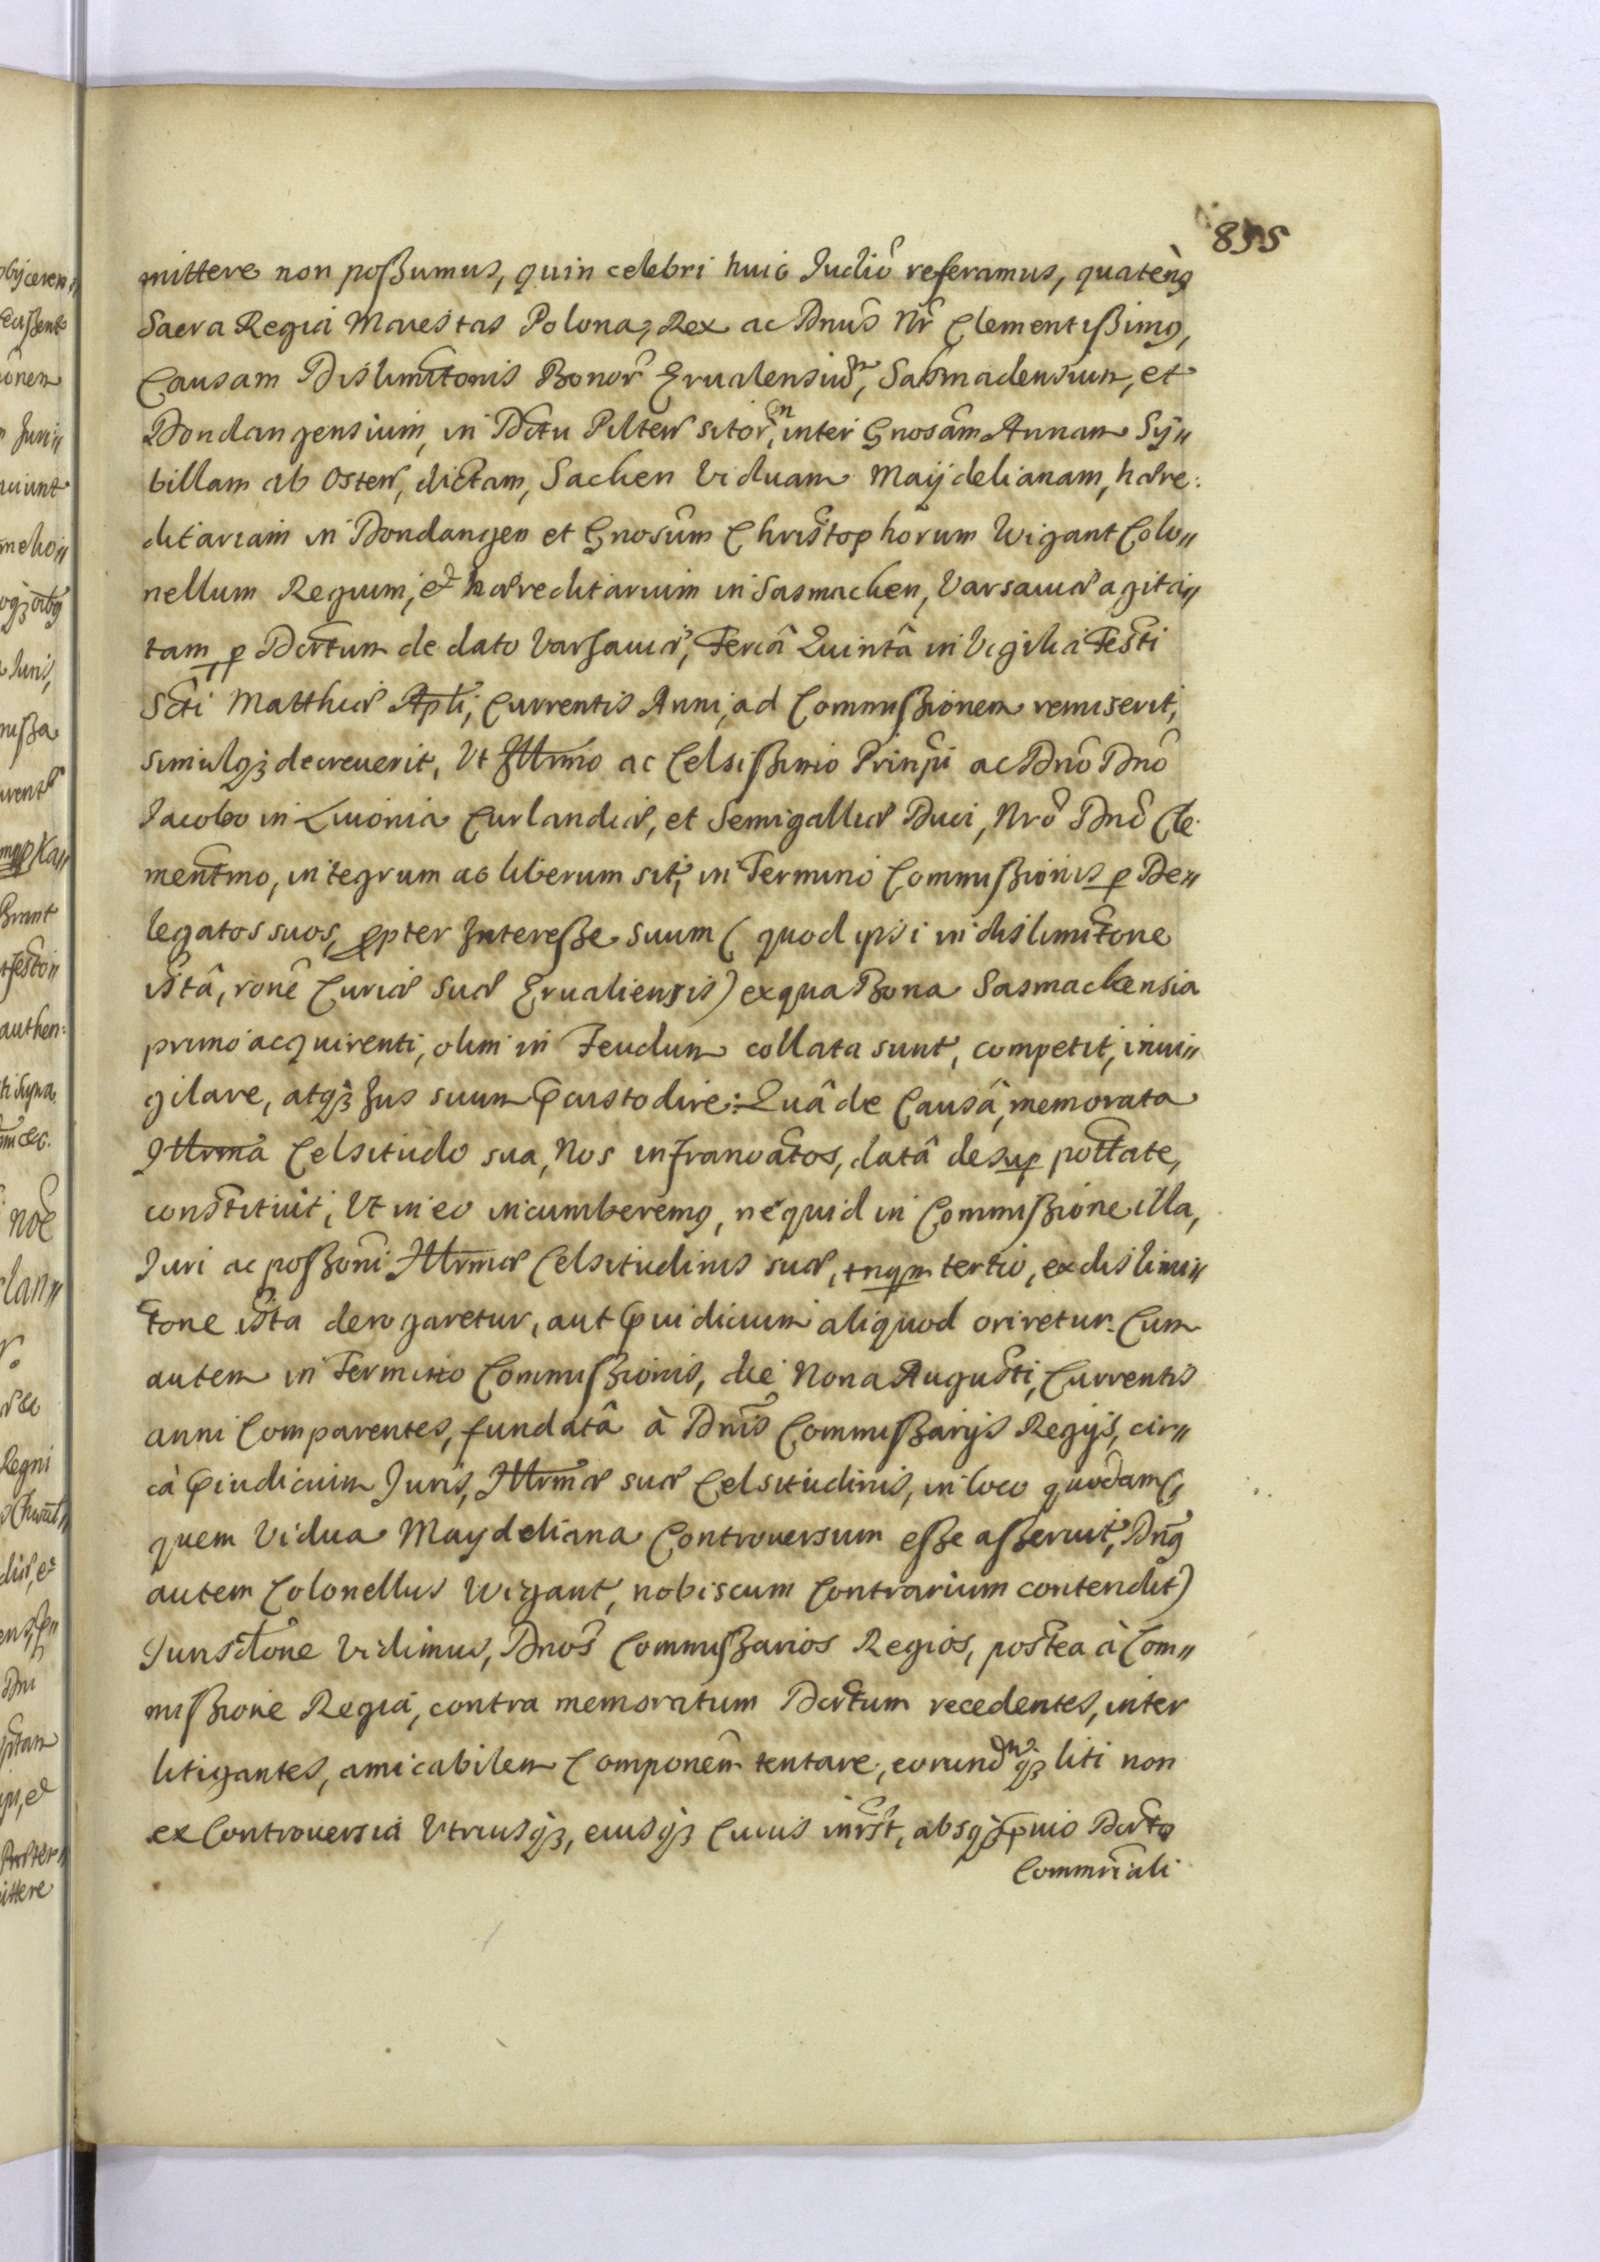 855
mittere non poßumus, quin celebri huic Iudiô referamus, quatenꝰ
Sacra Regia Maiestas Polona, Rex ac Dnûs Nr̂ Clementißimꝰ,
Causam Dislimitõnis Bonor̃ Erualensium, Sasmacensium, et
Dondangensium, in Dctu Pilten sitor̃, inter Gnosâm Annam Sÿ„
billam ab Osten, dictam, Sacken Viduam Maÿdelianam, hære:
ditariam in Dondangen et Gnosûm Christophorum Wigant Colo„
nellum Regium, et hæreditarium in Sasmacken, Varsauiæ agita„
tam, ꝑ Dcrtum de dato Varsauiæ, Feriâ Quintâ in Vigilia Festi
Scti Matthiæ Apli, Currentis Anni, ad Commißionem remiserit,
simulqꝫ decreuerit, Vt Illrmo ac Celsißimo Prinpi ac Dnô Dnô
Iacobo in Liuonia Curlandiæ, et Semigalliæ Duci, Nrô Dnô Cle
mentmo, integrum ac liberum sit, in Termino Commißionis ꝑ De„
legatos suos, ꝓpter Intereße suum (quod ipsi in dislimitõne
istâ, rone Curiæ suæ Erualiensis) ex qua Bona Sasmackensia
primo acquirenti, olim in Feudum collata sunt, competit, inui„
gilare, atqꝫ Jus suum p̃custodire: Quâ de Causâ, memorata
Illrma Celsitudo sua, Nos infranoâtos, datâ desuꝑ pottate,
constituit, Vt in eo incumberemꝰ, ne quid in Commißione illa,
Iuri ac poßoni Illrmæ Celsitudinis suæ, tnqm tertio, ex dislimi„
tone ista derogaretur, aut p̃iudicium aliquod oriretur. Cum
autem in Termino Commißionis, die Nona Augusti, Currentis
anni Comparentes, fundatâ à Dnis Commißarijs Regijs, cir„
cà p̃iudicium Iuris, Illrmæ suæ Celsitudinis, in loco quodam (,
quem Vidua Maydeliana Controuersum eße aßeruit, Dnꝰ
autem Colonellus Wigant, nobiscum Contrarium contendit)
Iurisdtone Vidimus, Dnos Commißarios Regios, postea à Com„
mißione Regia, contra memoratum Dcrtum recedentes, inter
litigantes, amicabilem Componem tentare, eorundmqꝫ liti non
ex Controuersia Vtriusqꝫ, eiusqꝫ Cuius inrst, absqꝫ p̃uio Dcrto
Commiali